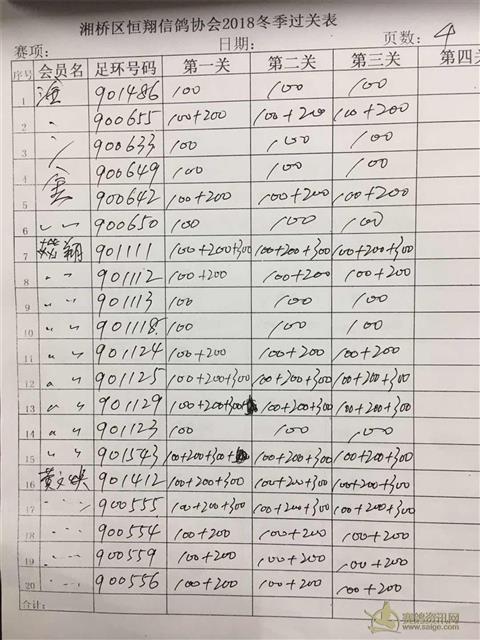 湘桥区恒翔信鸽协会2018冬季过关表
赛项: 日期: 页数: 4
序号 会员名 足环号码 第一关 第二关 第三关 第四关
1 901486 100 100 100
2 〃 900655 100+200 100+200 100+200
3 900633 100 100 100
4 900649 100 100 100
5 900642 100+200 100+200 100+200
6 〃 〃 900650 100 100 100
7 翔 901111 100+200+300 100+200+300 100+200+300
8 〃 〃 901112 100+200 100+200 100+200
9 〃 〃 901113 100 100 100
10 〃 〃 901118 100 100 100
11 〃 〃 901124 100+200 100+200 100+200
12 〃 〃 901125 100+200+300 100+200+300 100+200+300
13 〃 〃 901129 100+200+300+ 100+200+300 100+200+300
14 〃 〃 901123 100 100 100
15 〃 〃 901543 100+200+300+ 100+200+300 100+200+300
16 黄文 901412 100+200+300 100+200+300 100+200+300
17 900555 100+200+300 100+200+300 100+200+300
18 900554 100+200 100+200 100+200
19 900559 100+200 100+200 100+200
20 900556 100+200 100+200 100+200
合计:
赛鸽资讯网
www.saige.com